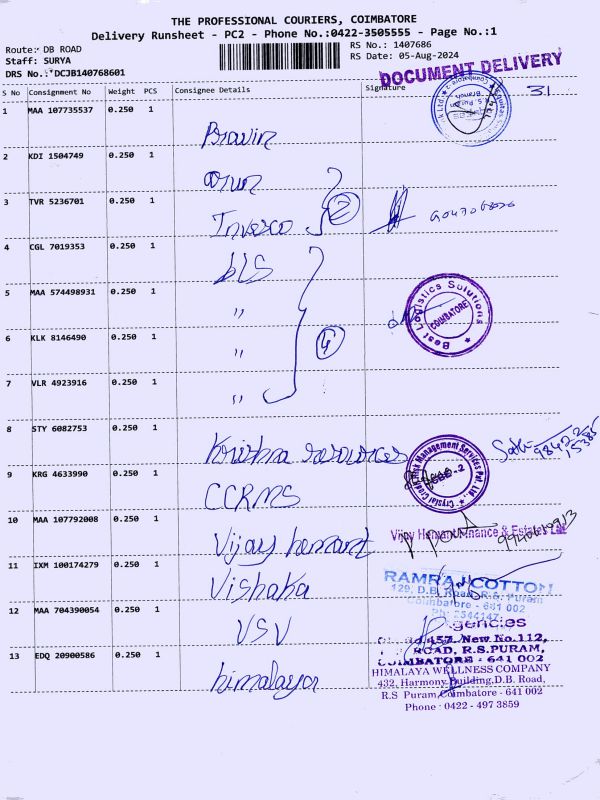 THE PROFESSIONAL COURIERS, COIMBATORE
Delivery Runsheet - PC2 - Phone No.:0422-3505555 - Page No.:1
Route: DB ROAD
RS No.: 1407686
Staff: SURYA
RS Date: 05-Aug-2024
DRS No.: DCJB140768601
DOCUMENT DELIVERY
S No Consignment No Weight PCS Consignee Details Signature
31
1 MAA 107735537 0.250 1 Pravin
2 KDI 1504749 0.250 1 Arun
3 TVR 5236701 0.250 1 Invesco 2
4 CGL 7019353 0.250 1 bLS
5 MAA 574498931 0.250 1 "
Best Logistics Solutions
COIMBATORE
6 KLK 8146490 0.250 1 " 4
7 VLR 4923916 0.250 1 "
8 STY 6082753 0.250 1 Krishna resources
Crystal Credit Risk Management Services Pvt. Ltd.
9 KRG 4633990 0.250 1 CCRMS
10 MAA 107792008 0.250 1 Vijay hemant
Vijay Hemant Finance & Estates Ltd.
11 IXM 100174279 0.250 1 Vishaka
RAMRAJ COTTON
129, D.B. Road, R.S. Puram
Coimbatore - 641 002
Ph: 2544147
12 MAA 704390054 0.250 1 VSV
Agencies
457, New No.112,
ROAD, R.S.PURAM,
COIMBATORE - 641 002
13 EDQ 20900586 0.250 1 himalaya
HIMALAYA WELLNESS COMPANY
432, Harmony Building, D.B. Road,
R.S Puram, Coimbatore - 641 002
Phone : 0422 - 497 3859